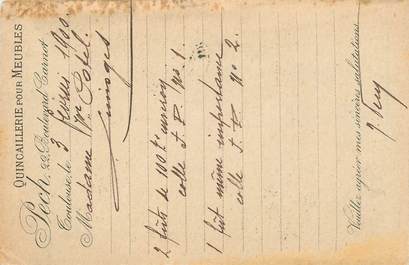 QUINCAILLERIE POUR MEUBLES
Pech, 22, Boulevard Carnot
Toulouse, le 3 février 1900
Madame Vve
Limoges
2 fûts de 100 k environ
colle J. P. No 1
1 fût même importance
colle J. P. No 2.
Veuillez agréer mes sincères salutations.